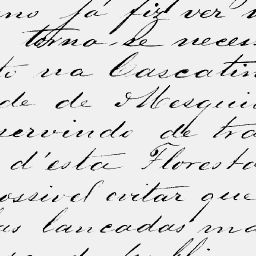 no já fiz ver
torna-se neces
to na Cascatin
de de Mesqui
servindo de tra
d'esta Floresta
ossivel evitar que
as lancadas ma